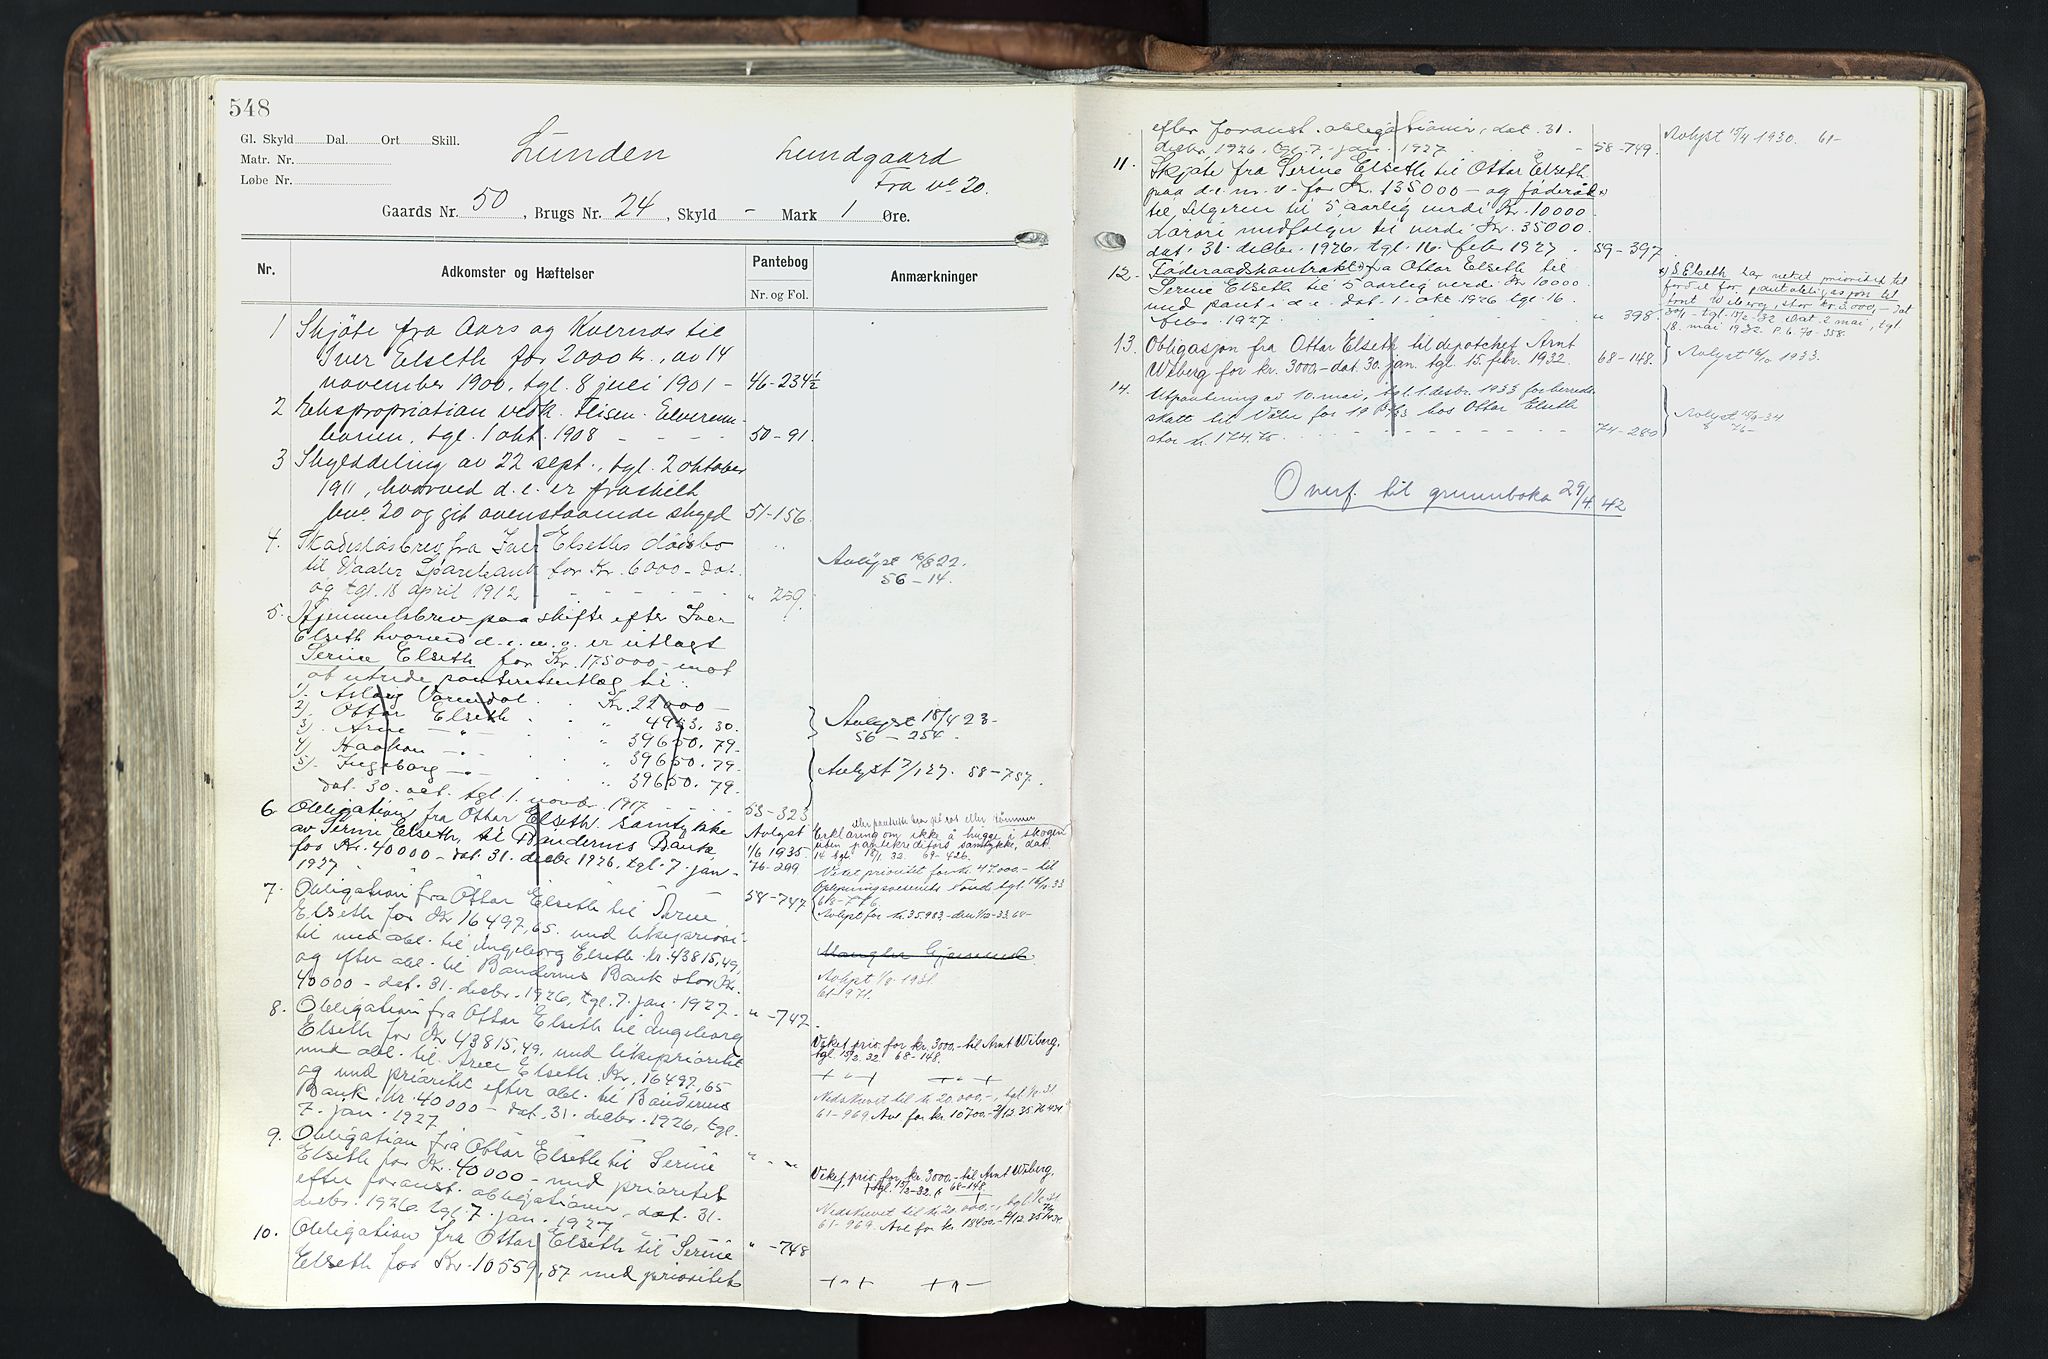 548
Gl. Skyld Dal. Ort Skill.
Matr. Nr.
Løbe Nr.
Lunden Lundgaard
Fra no 20.
Gaards Nr. 50, Brugs Nr. 24, Skyld - Mark 1 Øre.
Nr. Adkomster og Hæftelser Pantebog Anmærkninger
Nr. og Fol.
1 Skjøte fra Aars og Kvernos til
Iver Elseth for 2000 kr., av 14
november 1900, tgl. 8 juli 1901 - 46-234½
2 Ekspropriation vedk. Flisen-Elverum-
banen, tgl. 1 okt. 1908 - - - - 50-91.
3 Skylddeling av 22 sept., tgl. 2 oktober
1911, hvorved d. e. er fraskilt
bno. 20 og git ovenstaaende skyld 51-156.
4. Skadesløsbrev fra Iver Elseths dødsbo
til Vaaler Sparebank for Kr. 6000 - dat.
og tgl. 18 april 1912. - - - - - " 259.
Avlyst 16/8 22.
56-14.
5. Hjemmelsbrev paa skifte efter Iver
Elseth hvorved d. e. m. v. er utlagt
Serine Elseth for Kr. 175000 - mot
at utrede panteretsutlæg til:
1). Aslaug Vorendal . . Kr. 22000 -
2). Ottar Elseth . . " 4953, 30.
3). Arne - " - . " 39650. 79.
4). Haakon - " - . " 39650. 79.
5). Ingeborg - " - . " 39650. 79.
dat. 30. okt. tgl. 1. novbr. 1917 53-323
Avlyst 18/4 23-
56-254.
Avlyst 7/1 27. 58-757.
6. Obligation fra Ottar Elseth samtykke
av Serine Elseth, til Bøndernes Bank
for Kr. 40000 - dat. 31. decbr. 1926, tgl. 7. jan.
1927 58-747
Avlyst
1/6 1935
76-299
eller pantsette den på rot eller tømmer
Erklæring om ikke å hugge i skogen
uten pantekreditors samtykke, dat.
14 tgl. 18/1 32. 69-426.
Veket prioritet for kr. 47.000.- til
Oplysningsvesenets Fonds tgl. 16/10 33
68-776.
Avlyst for kr. 35.983.-
7. Obligation fra Ottar Elseth til Arne
Elseth for Kr. 16497,65. med likepriori-
tet med obl. til Ingeborg Elseth kr. 43815,49,
og efter obl. til Bøndernes Bank stor Kr.
40000 - dat. 31. decbr. 1926, tgl. 7. jan. 1927. " -747.
Mangler Hjemmel.
Avlyst 1/8. 1931.
61-971.
8. Obligation fra Ottar Elseth til Ingeborg
Elseth for Kr. 43815,49, med likeprioritet
med obl. til Arne Elseth Kr. 16497,65
og med prioritet efter obl. til Bøndernes
Bank Kr. 40000 - dat. 31. decbr. 1926, tgl.
7. jan. 1927 " - "
Veket prio. for kr. 3000.- til Arnt Wiberg,
tgl. 15/2. 32 68-148.
Nedskrevet til kr 20.000.-,
61-969. Avl for kr. 10700.-
9. Obligation fra Ottar Elseth til Serine
Elseth for Kr. 40000 - med prioritet
efter foranst. obligationer, dat. 31.
decbr. 1926, tgl. 7. jan. 1927
Veket prio. for kr 3000.- til Arnt Wiberg.
tgl. 15/2-32. 68-148.
61-969. Avl for kr 18400.-
10. Obligation fra Ottar Elseth til Serine " -748
Elseth for Kr. 10559,87 med prioritet
efter foranst. obligationer, dat. 31.
decbr. 1926, tgl. 7. jan. 1927 58-749.
Avlyst 15/4 1930. 61-
11. Skjøte fra Serine Elseth til Ottar Elseth
paa d. e. m. v. for Kr. 135000 - og føderåd x)
til selgeren til 5 aarlig verdi Kr. 10000.
Løsøre medfølger til verdi Kr. 35000.
dat. 31. decbr. 1926, tgl. 16. febr 1927 . 59-397
12. Føderaadskontrakt x) fra Ottar Elseth til
Serine Elseth til 5 aarlig verd. Kr. 10000.
med pant i d. e. dat. 1. okt 1926 tgl. 16.
febr. 1927 " 398
x) S. Elseth har veket prioritet til
fordel for pantobligasjon til
Arnt Wiberg, stor kr. 3.000,- dat
30/1 - tgl. 15/2-32. Dat. 2 mai, tgl.
18. mai 1932. P.b. 70-358.
13. Obligasjon fra Ottar Elseth til depotchef Arnt
Wiberg for kr. 3000.- dat. 30. jan. tgl. 15. febr. 1932. 68-148.
Avlyst 16/10 1933.
14. Utpantning av 10. mai, tgl. 1. desbr. 1933 for herreds-
skatt til Våler for 19 hos Ottar Elseth
stor kr. 174.75 74-280
Overf. til grunnboka 29/4.42